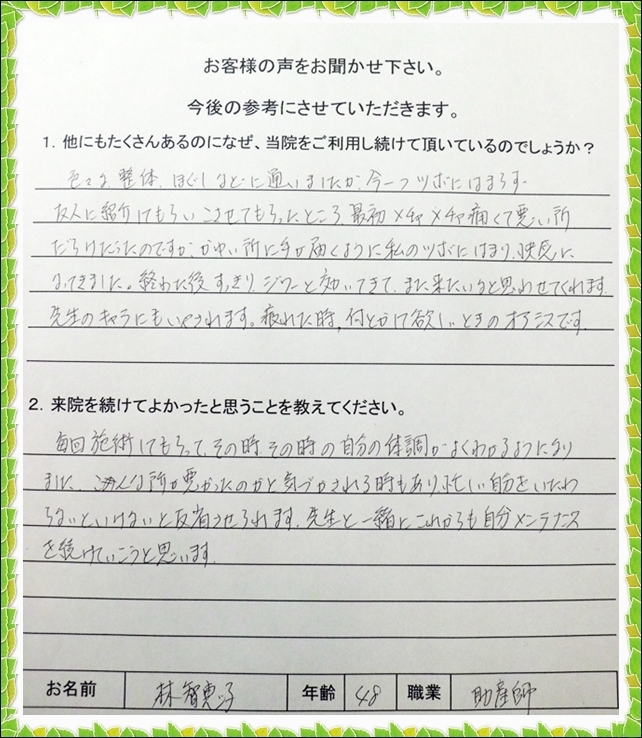 お客様の声をお聞かせ下さい。
今後の参考にさせていただきます。
1. 他にもたくさんあるのになぜ、当院をご利用し続けて頂いているのでしょうか？
色々な整体、ほぐしなどに通いましたが、今一つツボにはまらず
友人に紹介してもらいこさせてもらったところ、最初メチャメチャ痛くて悪い所
だらけだったのですが、かゆい所に手が届くように私のツボにはまり、快感に
なってきました。終わった後すっきり、ジワーと効いてきて、また来たいなと思わせてくれます
先生のキャラにもいやされます。疲れた時、何とかして欲しいときのオアシスです
2. 来院を続けてよかったと思うことを教えてください。
毎回施術してもらって、その時、その時の自分の体調がよくわかるようになり
ました、こんな所が悪かったのかと気づかされる時もあり、忙しい自分をいたわ
らないといけないと反省させられます、先生と一緒にこれからも自分メンテナンス
を続けていこうと思います
お名前 林智恵子 年齢 48 職業 助産師